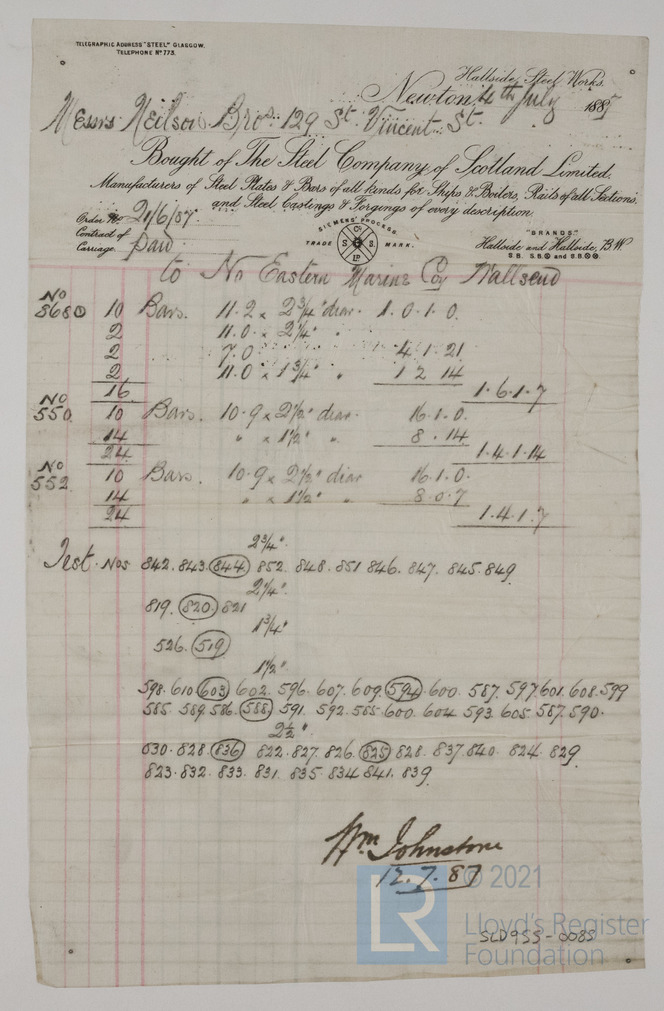 TELEGRAPHIC ADDRESS "STEEL" GLASGOW.
TELEPHONE No 773.
Hallside Steel Works.
Newton, 4th July 1887
Messrs Neilson Bros. 129 St. Vincent St.
Bought of The Steel Company of Scotland Limited.
Manufacturers of Steel Plates & Bars of all kinds for Ships & Boilers, Rails of all Sections.
and Steel Castings & Forgings of every description.
Order No. 21/6/87.
Contract of
Carriage. paid
SIEMENS' PROCESS.
TRADE MARK.
"BRANDS."
Hallside and Hallside, B.W.
S.B. S.B. and S.B.
to No Eastern Marine Coy Wallsend
No
8680 10 Bars. 11.2 x 2 3/4" diar. 1.0.1.0.
2 11.0 x 2 1/4" "
2 7.0 4.1.21
2 11.0 x 1 3/4" " 1 2 14
16 1.6.1.7
No
550 10 Bars. 10.9 x 2 1/2" diar. 16.1.0.
14 " x 1 1/2" " 8.14
24 1.4.1.14
No
552 10 Bars. 10.9 x 2 1/2" diar 16.1.0.
14 " x 1 1/2" " 8.0.7
24 1.4.1.7
2 3/4"
Test Nos 842. 843. 844 852. 848. 851 846. 847. 845. 849.
2 1/4"
819. 820. 821
1 3/4"
526. 519
1 1/2"
598. 610. 603 602. 596. 607. 609. 594. 600. 587. 597. 601. 608. 599
585. 589. 586. 588. 591. 592. 585. 600. 604 593. 605. 587. 590.
2 1/2"
830. 828. 836 822. 827. 826. 825 828. 837. 840. 824. 829
823. 832. 833. 831. 835. 834 841. 839.
Wm Johnstone
12.7.87
© 2021
LR
Lloyd's Register
Foundation
SLD953-0085